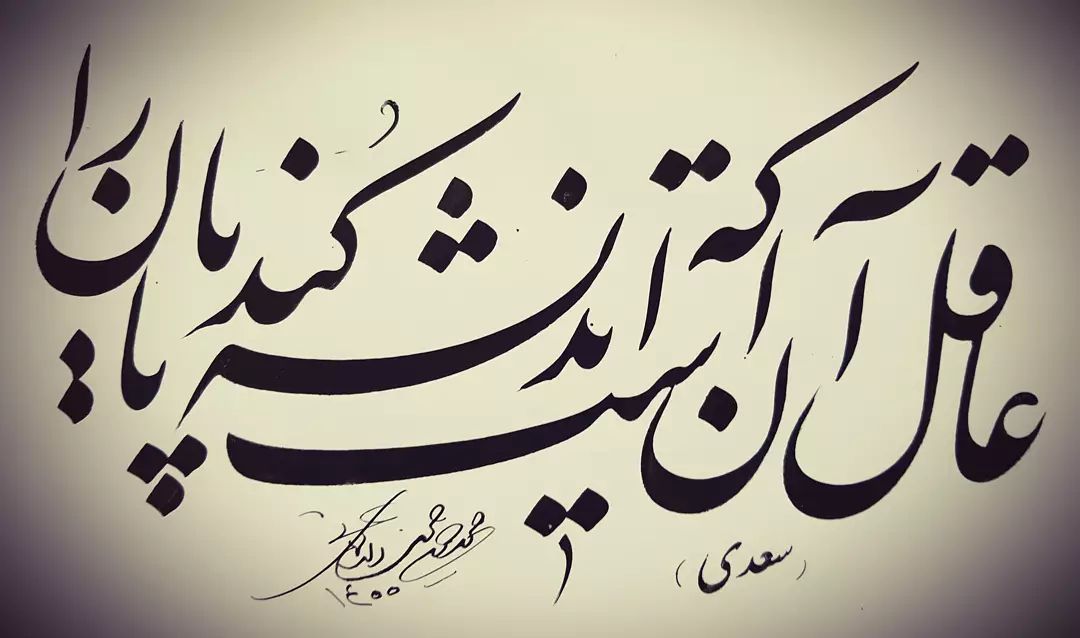 عاقل آن است که اندیشه کند پایان را
(سعدی)
۱۴۰۰